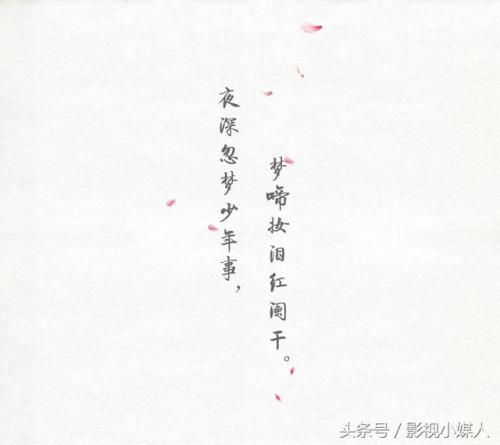 夜深忽梦少年事，
梦啼妆泪红阑干。
头条号 / 影视小媒人